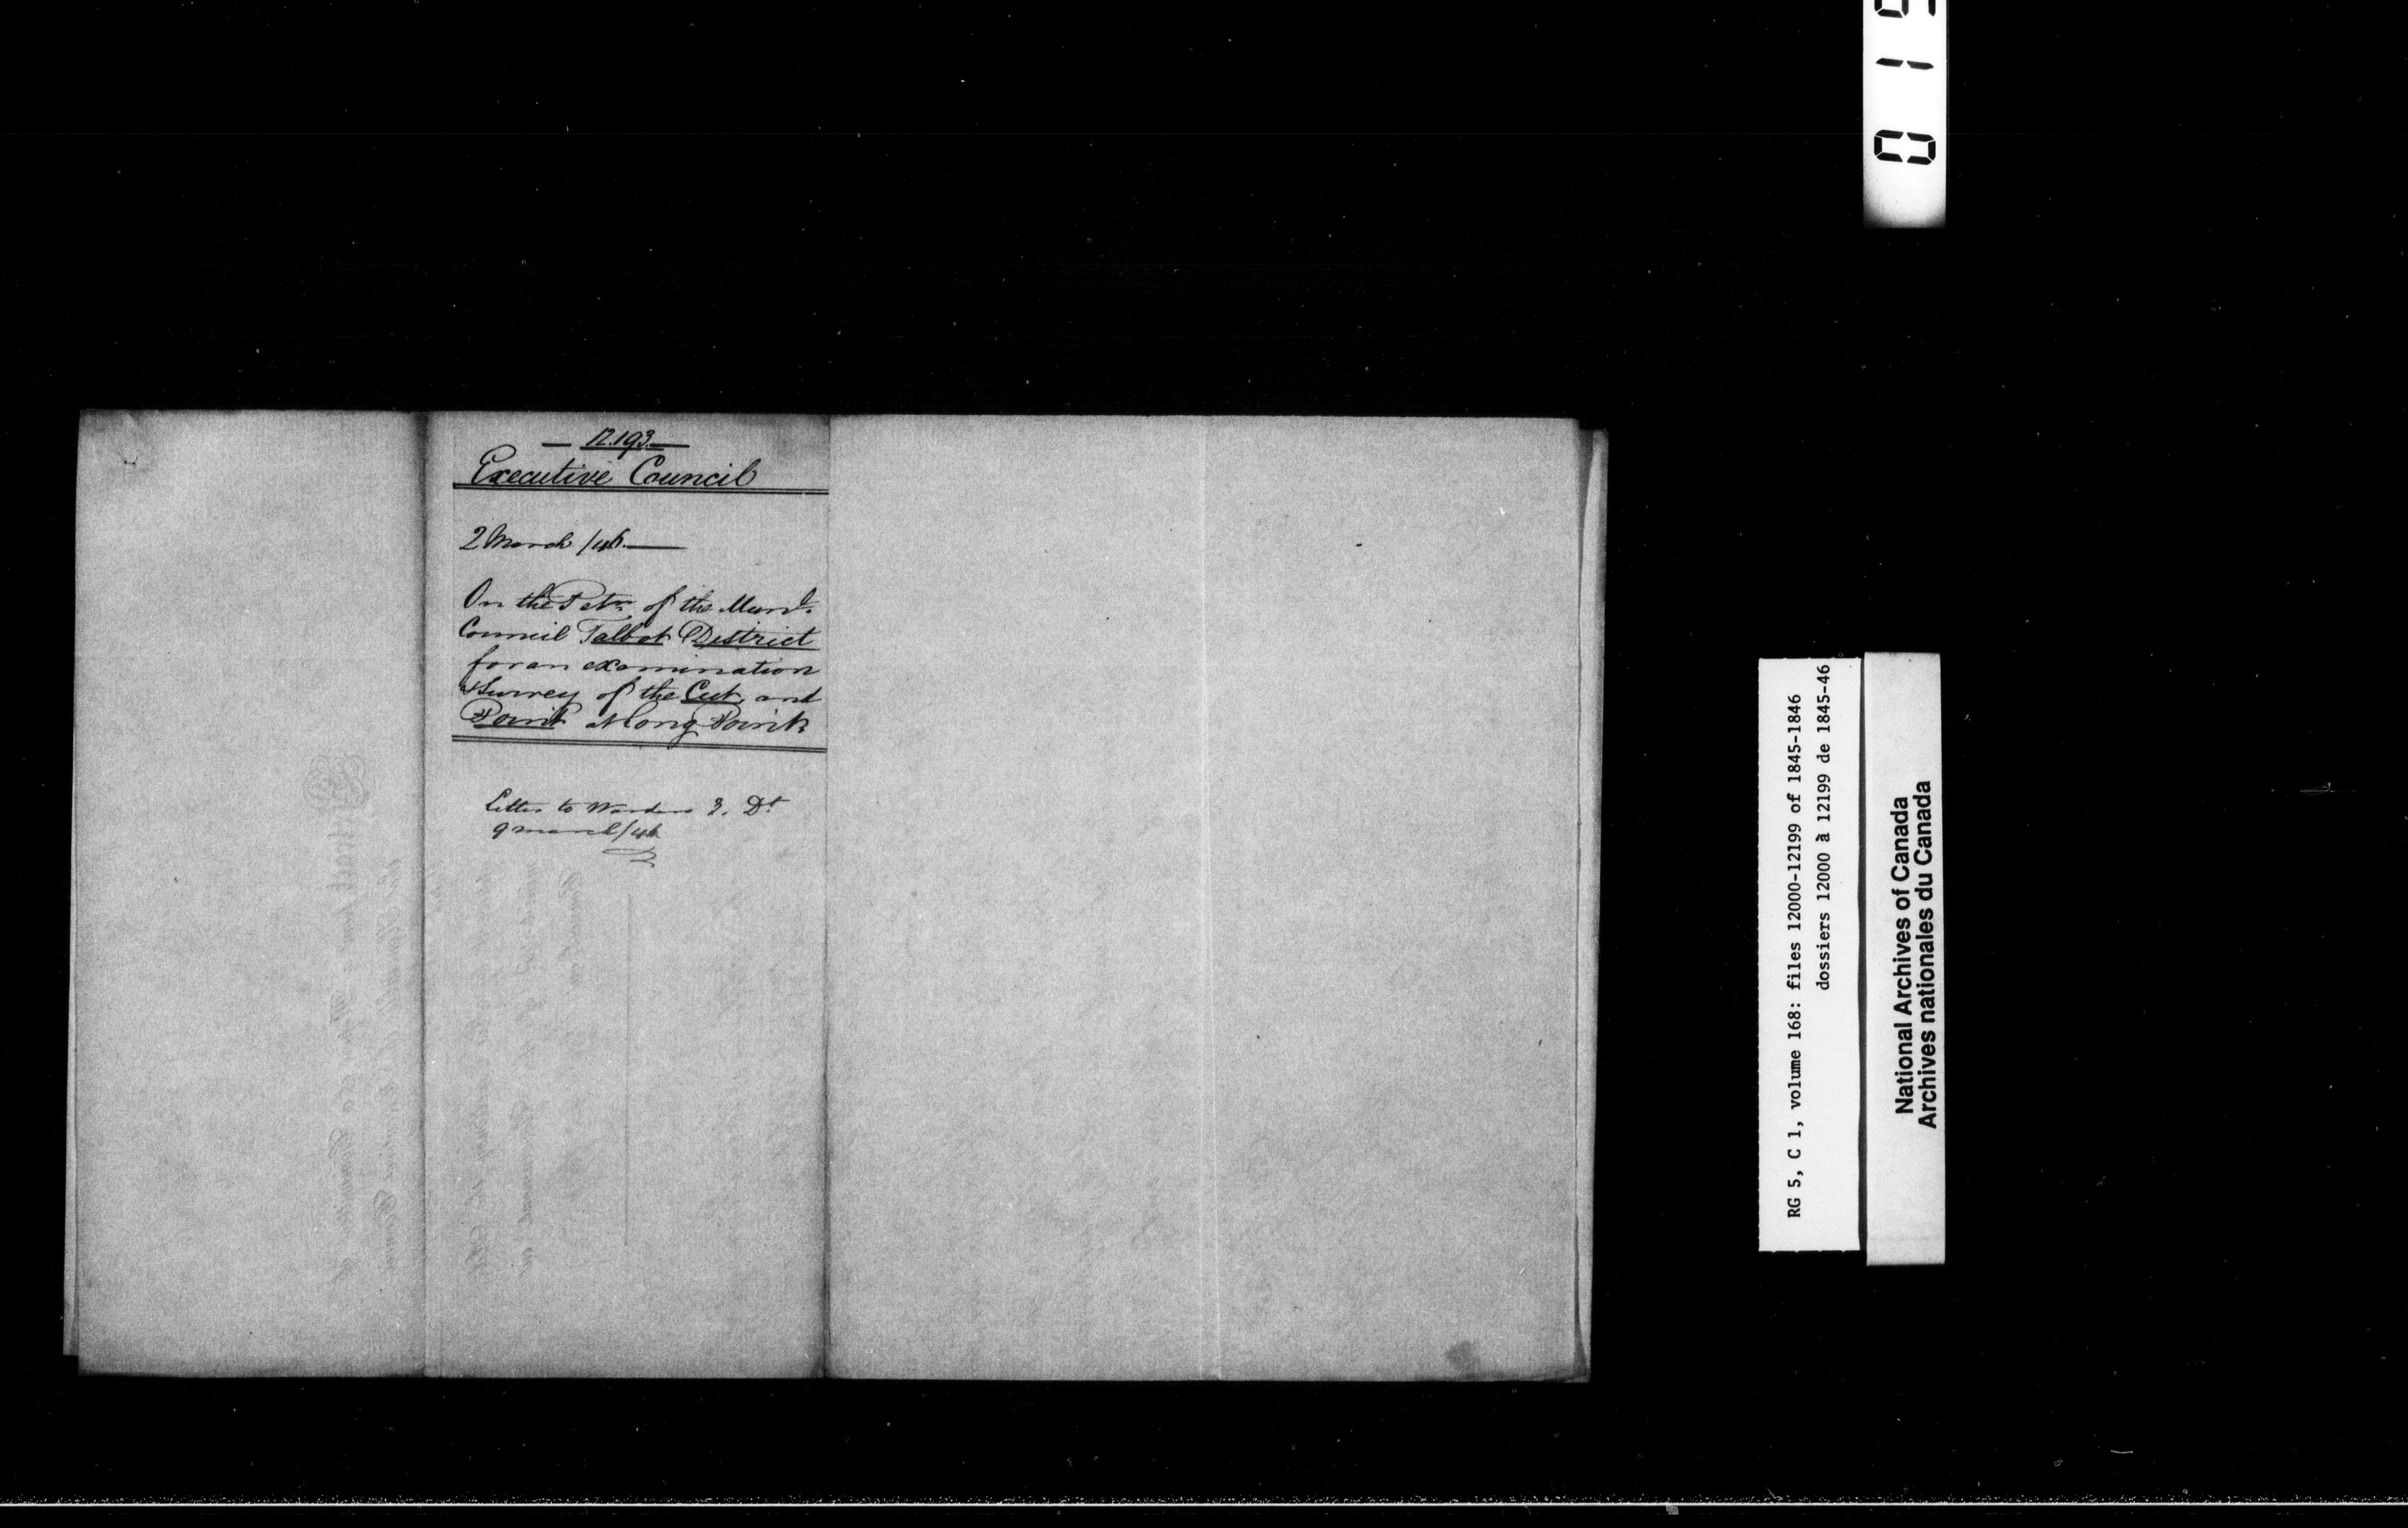 12.193
Executive Council
2 March /46.
On the Petn. of the Munl.
Council Talbot District
for an examination
& Survey of the Cut, and
Point at Long Point.
Letter to Warden T. Dt
9 March/46
RG 5, C 1, volume 168: files 12000-12199 of 1845-1846
dossiers 12000 à 12199 de 1845-46
National Archives of Canada
Archives nationales du Canada